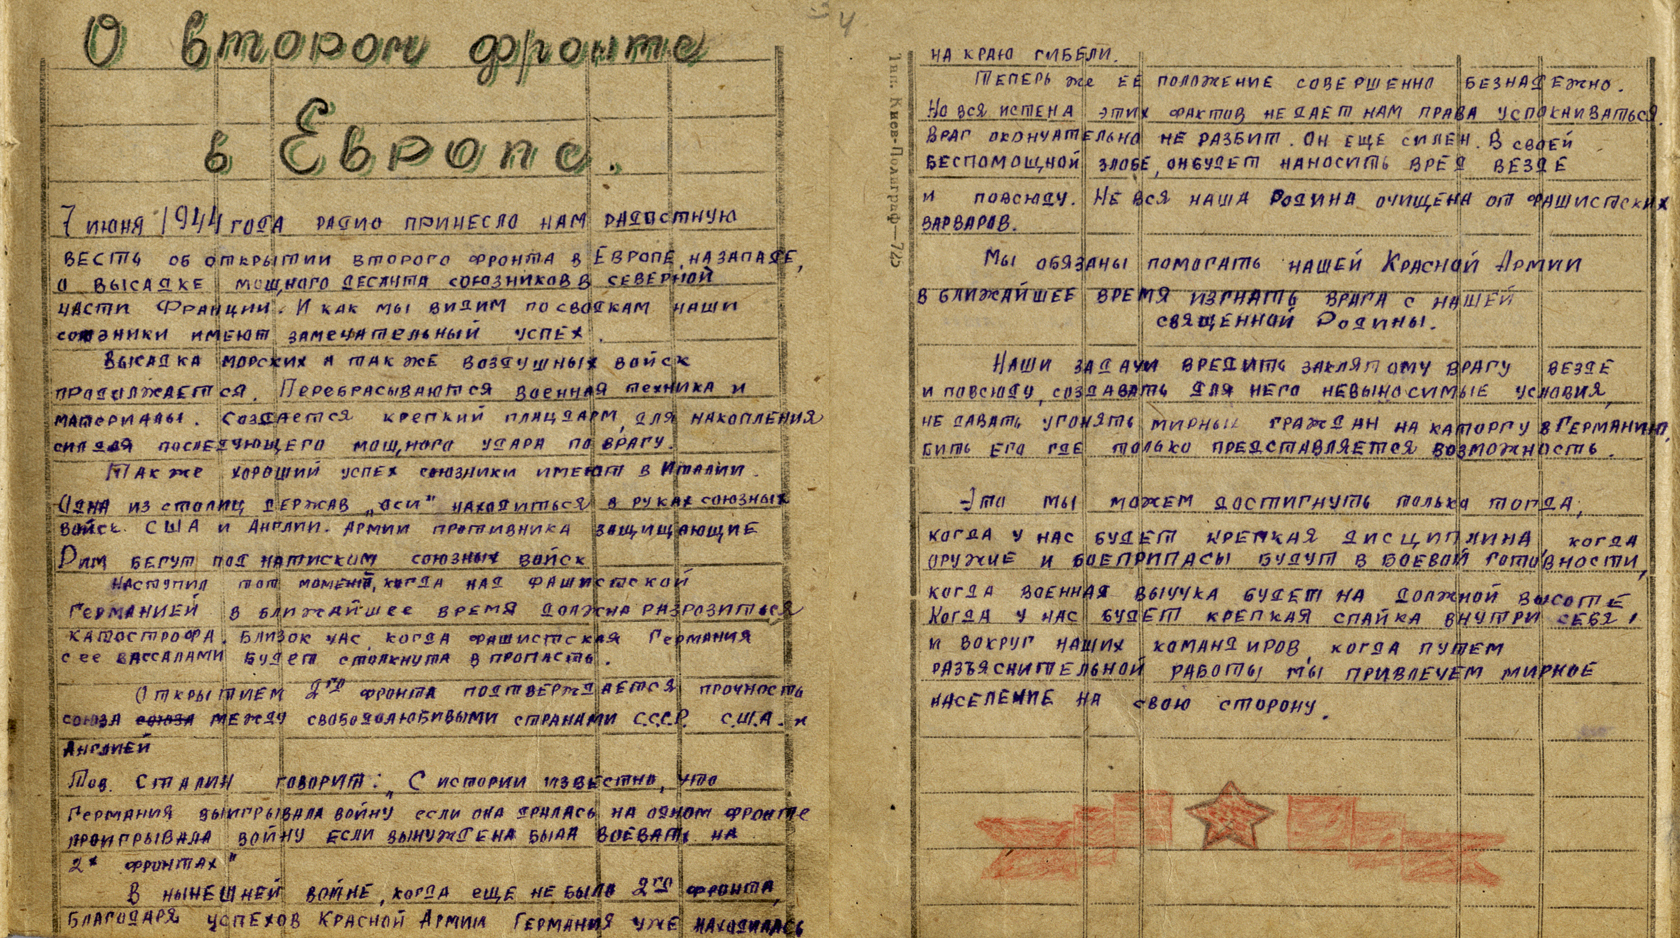 О втором фронте
в Европе.
7 июня 1944 года радио принесло нам радостную
весть об открытии второго фронта в Европе, на западе,
о высадке мощного десанта союзников в северной
части Франции. И как мы видим по сводкам наши
союзники имеют замечательный успех.
Высадка морских а так же воздушных войск
продолжается. Перебрасываются военная техника и
материалы. Создается крепкий плацдарм, для накопления
сил для последующего мощного удара по врагу.
Так же хороший успех союзники имеют в Италии.
Одна из столиц держав „оси" находиться в руках союзных
войск США и Англии. Армии противника защищающие
Рим бегут под натиском союзных войск
Наступил тот момент, когда над фашистской
Германией в ближайшее время должна разрозиться
катострофа. Близок час, когда фашистская Германия
с ее вассалами будет столкнута в пропасть.
Открытием 2го фронта подтверждается прочность
союза союза между свободолюбивыми странами С.С.С.Р. С.Ш.А. и
Англией
Тов. Сталин говорит: „С истории известно, что
Германия выигрывала войну если она дралась на одном фронте
проигрывала войну если вынуждена была воевать на
2х фронтах"
В нынешней войне, когда еще не было 2го фронта,
благодаря успехов Красной Армии Германия уже находилась
34
на краю гибели.
Теперь же её положение совершенно безнадежно.
Но вся истена этих фактов не дает нам права успокаиваться.
Враг окончательно не разбит. Он еще силен. В своей
беспомощной злобе, он будет наносить вред везде
и повсюду. Не вся наша Родина очищена от фашистских
варваров.
Мы обязаны помогать нашей Красной Армии
в ближайшее время изгнать врага с нашей
священной Родины.
Наши задачи вредить заклятому врагу везде
и повсюду, создавать для него невыносимые условия,
не давать угонять мирных граждан на каторгу в Германию,
бить его где только представляется возможность.
Это мы можем достигнуть только тогда,
когда у нас будет крепкая дисциплина, когда
оружие и боеприпасы будут в боевой готовности,
когда военная выучка будет на должной высоте
Когда у нас будет крепкая спайка внутри себя,
и вокруг наших командиров, когда путем
разъяснительной работы мы привлечем мирное
население на свою сторону.
Тип. Киев-Полиграф—725